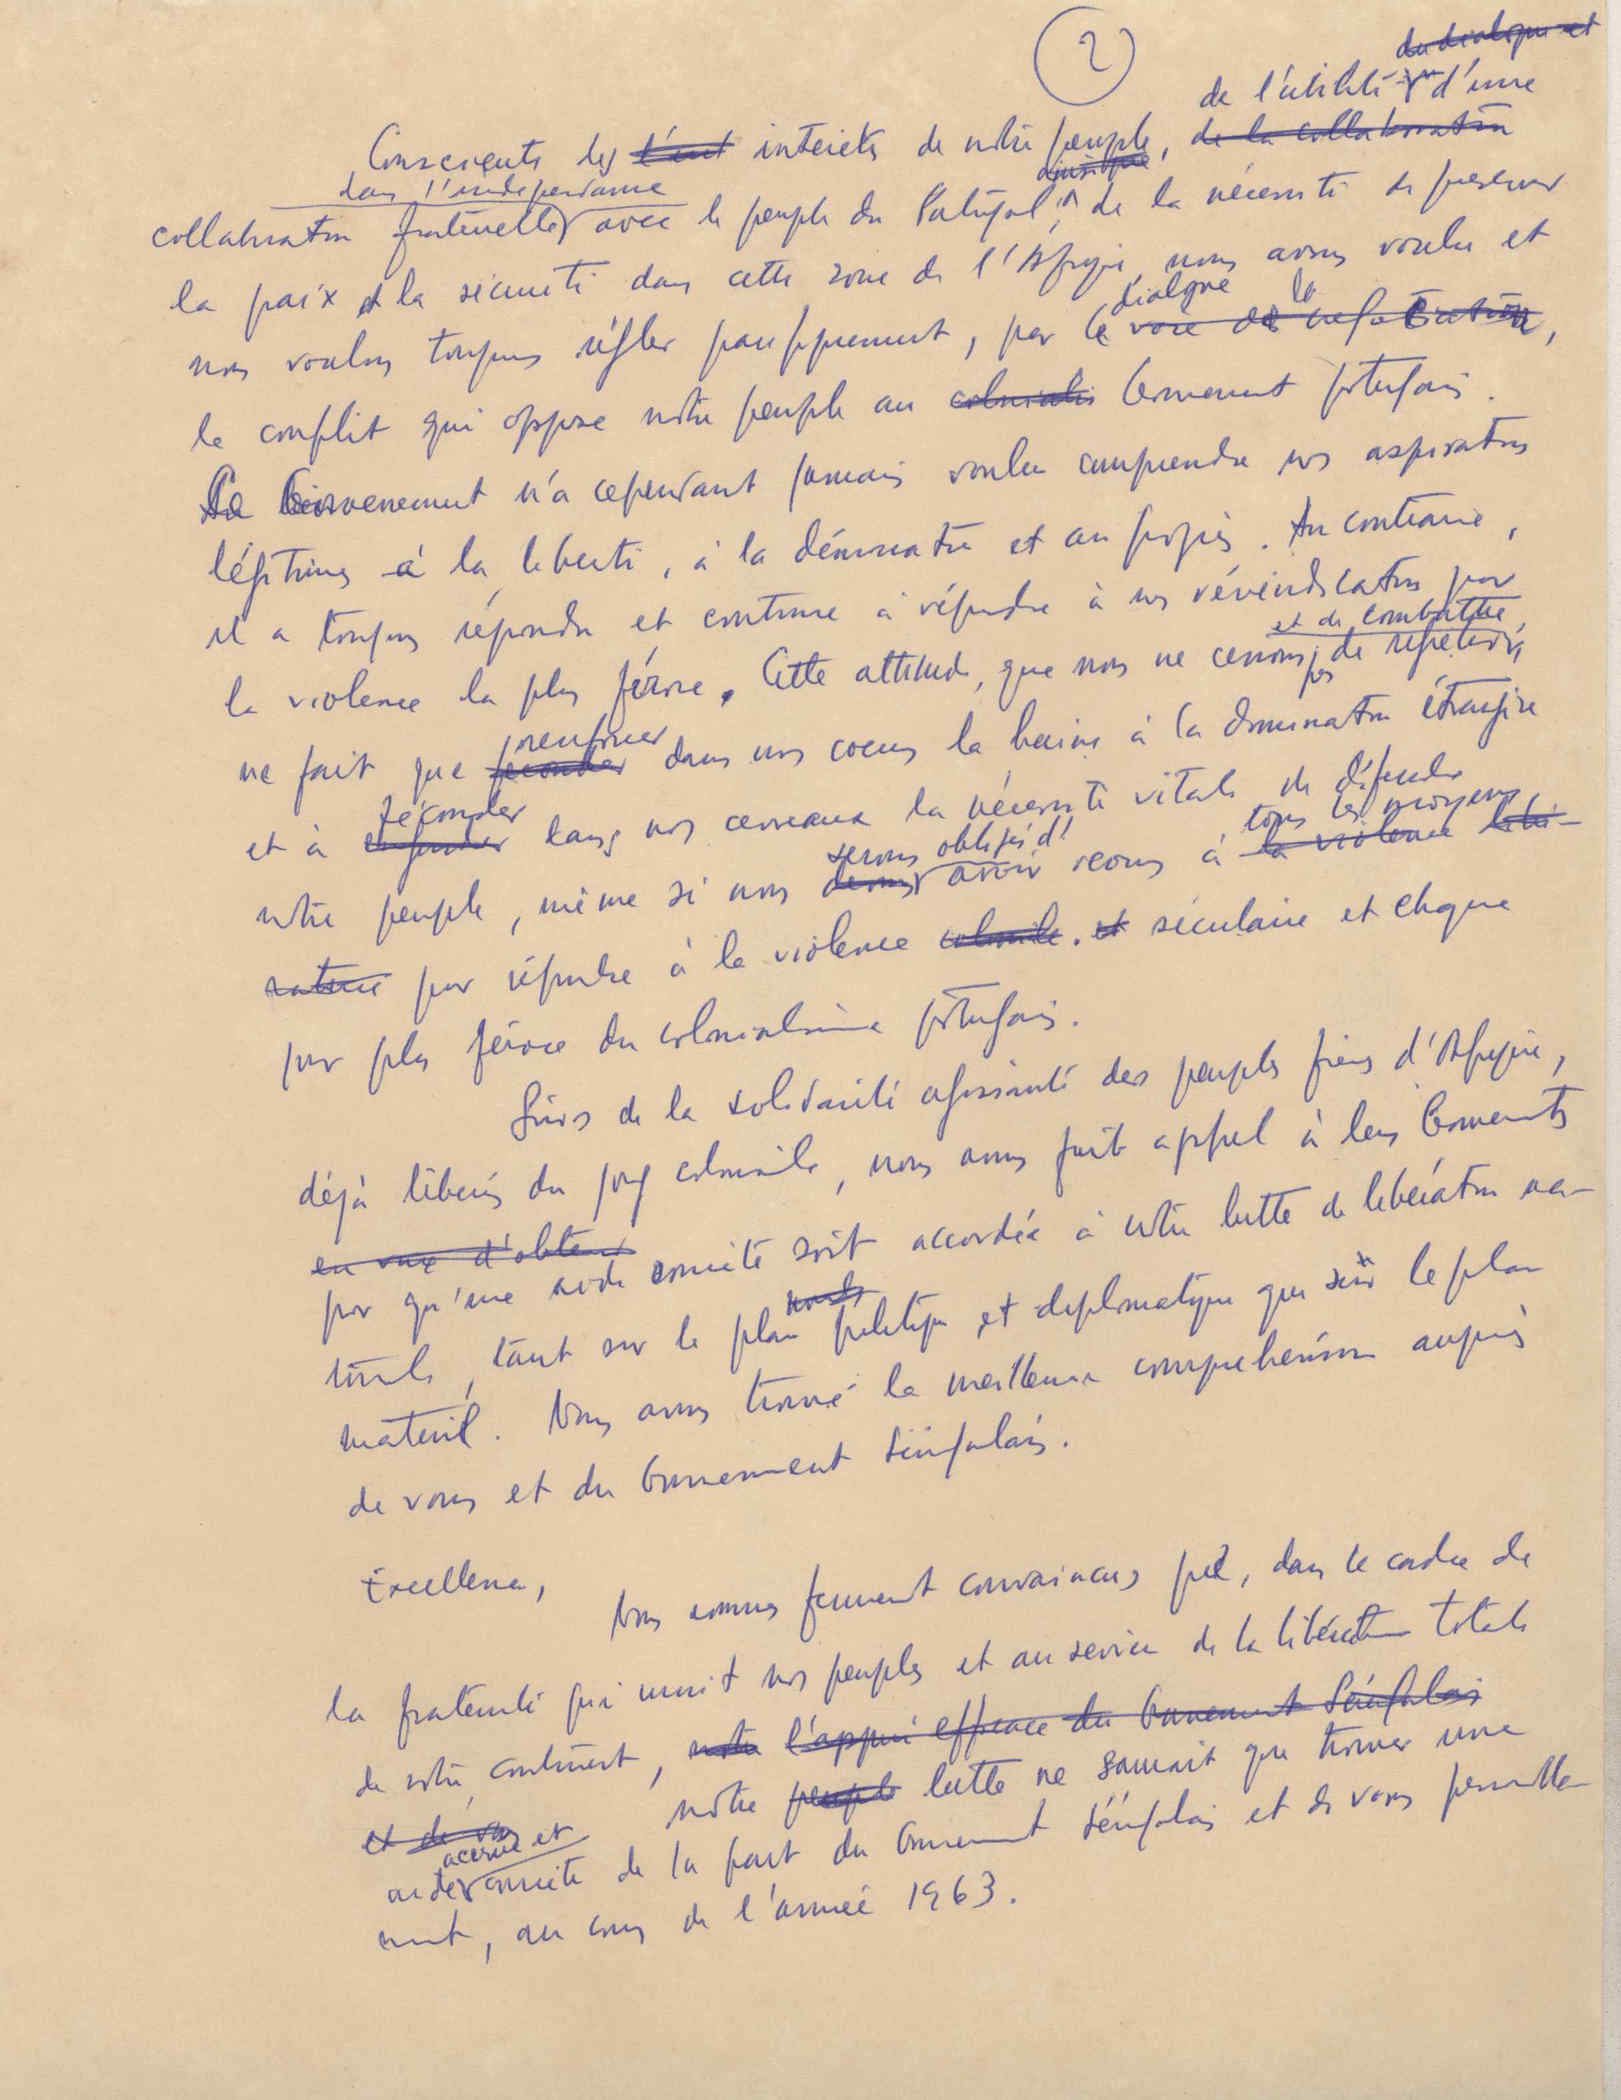 2
du dialogue et
de l'utilité d'une
Conscients des interêts de notre peuple, de la collaboration
dans l'indépendance
collaboration fraternelle avec le peuple du Portugal, de la nécessité de préserver
la paix et la sécurité dans cette zone de l'Afrique, nous avons voulu et
dialogue la
nous voulons toujours régler pacifiquement, par le voie de negociation,
le conflit qui oppose notre peuple au colonialis Gouvernement portugais.
Le Gouvernement n'a cependant jamais voulu comprendre nos aspirations
légitimes à la liberté, à la démocratie et au progrès. Au contraire,
il a toujours répondu et continue à répondre à nos révéndications par
et de combattre,
la violence la plus féroce. Cette attitude, que nous ne cessons pas de
renforcer
ne fait que féconder dans nos coeurs la haine à la domination étrangère
féconder
et à renforcer dans nos cerveaux la nécessité vitale de défendre
serons obligés d' tous les moyens
notre peuple, même si nous devons avoir recours à la violence libé-
ratrice pour répondre à la violence coloniale. et séculaire et chaque
jour plus féroce du colonialisme portugais.
Sûrs de la solidarité agissante des peuples frères d'Afrique,
déjà libérés du joug coloniale, nous avons fait appel à leurs Gouvernements
en vue d'obtenir
pour qu'une aide concrète soit accordée à notre lutte de libération na-
tionale, tant sur le plan politique et diplomatique que sur le plan
matériel. Nous avons trouvé la meilleure comprehénsion auprès
de vous et du Gouvernement Sénégalais.
Excellence,
Nous sommes fermement convaincus que, dans le cadre de
la fraternité qui unit nos peuples et au service de la libération totale
de notre continent, notre l'appui efficace du Gouvernement Sénégalais
et de vous notre peuple lutte ne saurait que trouver une
accrue et
aide concrète de la part du Gouvernement Sénégalais et de vous personnelle-
ment, au cours de l'année 1963.